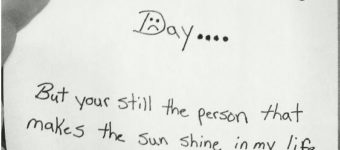 Day....
But your still the person that
makes the sun shine in my life